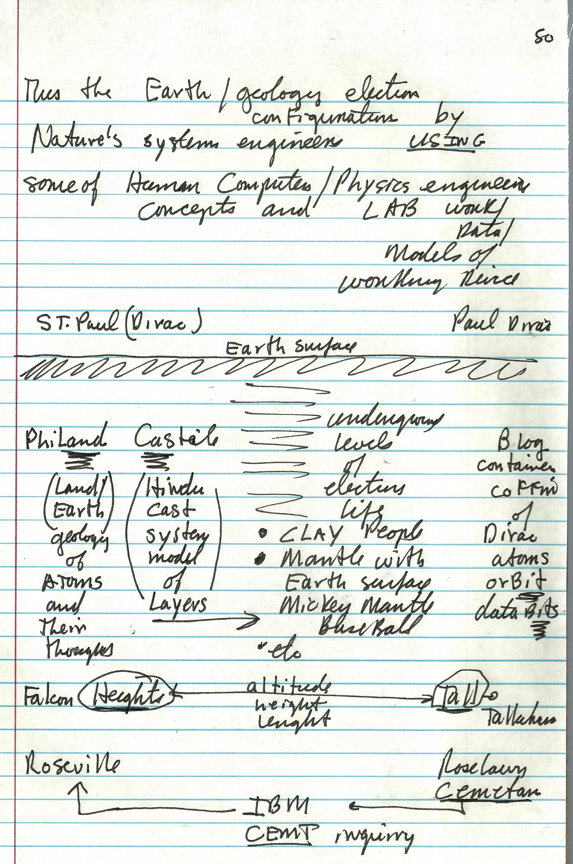 50
Thus the Earth / geology election
configuration by
Nature's systems engineers USING
some of Human Computer / Physics engineering
concepts and LAB work /
Data /
Models of
working
ST. Paul (Dirac) Paul Dirac
Earth surface
underground
PhiLand Castile levels Blog
of container
(Land / (Hindu election coffin
Earth) cast life of
geology system • CLAY People Dirac
of model • Mantle with atoms
Atoms of Earth surface orBit
and Layers) Mickey Mantle data Bits
Their BaseBall
thoughts • etc
Falcon Heights altitude Tall
height Tallahass
lenght
Roseville Roselawn
Cemetary
IBM
CEMT inquiry